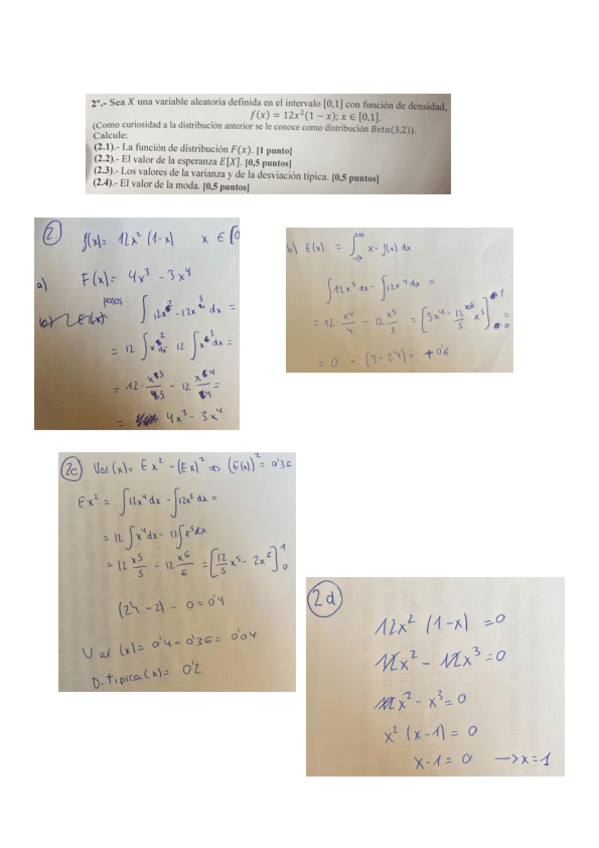 2º.- Sea X una variable aleatoria definida en el intervalo [0,1] con función de densidad,
f(x) = 12x²(1 − x); x ∈ [0,1].
(Como curiosidad a la distribución anterior se le conoce como distribución Beta(3,2)).
Calcule:
(2.1).- La función de distribución F(x). [1 punto]
(2.2).- El valor de la esperanza E[X]. [0,5 puntos]
(2.3).- Los valores de la varianza y de la desviación típica. [0,5 puntos]
(2.4).- El valor de la moda. [0,5 puntos]
2) f(x) = 12x² (1-x) x ∈ [0
a) F(x) = 4x³ - 3x⁴
pasos: ∫ 12x² - 12x³ dx =
= 12 ∫ x² dx - 12 ∫ x³ dx =
= 12 · x³/3 - 12 x⁴/4 =
= 4x³ - 3x⁴
b) E(x) = ∫ x · f(x) dx
∫ 12x³ dx - ∫ 12x⁴ dx =
= 12 x⁴/4 - 12 x⁵/5 = [3x⁴ - 12/5 x⁵]¹₀ =
= 0 - (3 - 2'4) = +0'6
2c) Var(x) = Ex² - (Ex)² => (E(x))² = 0'36
Ex² = ∫ 12x⁴ dx - ∫ 12x⁵ dx =
= 12 ∫ x⁴ dx - 12 ∫ x⁵ dx
= 12 x⁵/5 - 12 x⁶/6 = [12/5 x⁵ - 2x⁶]¹₀
(2'4 - 2) - 0 = 0'4
Var (x) = 0'4 - 0'36 = 0'04
D. tipica (x) = 0'2
2d)
12x² (1-x) = 0
12x² - 12x³ = 0
x² - x³ = 0
x² (x-1) = 0
x-1 = 0 → x = 1